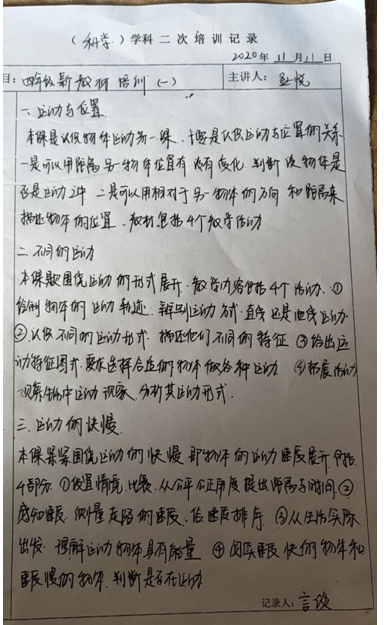 （科学）学科二次培训记录
2020年11月11日
目：四年级新教材培训（一）
主讲人：
一、运动与位置
本课是认识物体运动第一课，主要是认识运动与位置的关系
一是可以用距离另一物体位置有没有变化，判断该物体是
否是运动 二是可以用相对于另一物体的方向和距离来
描述物体的位置，教材包括4个教学活动
二、不同的运动
本课题围绕运动的形式展开，教学内容包括4个活动。①
绘制物体的运动轨迹，辨别运动方式，直线还是曲线运动
②认识不同的运动形式，描述他们不同的特征 ③给出运
动特征图式，要求选择合适的物体做各种运动 ④拓展活动
观察生活中运动现象，分析其运动形式.
三、运动的快慢
本课紧紧围绕运动的快慢 即物体的运动速度展开，包括
4部分 ①设置情境，比赛，从公平公正角度提出距离与时间，②
感知速度，测量走路的速度，给速度排序 ③从生活实际
出发 理解运动物体具有能量 ④阅读速度快的物体和
速度慢的物体，判断是否在运动
记录人：